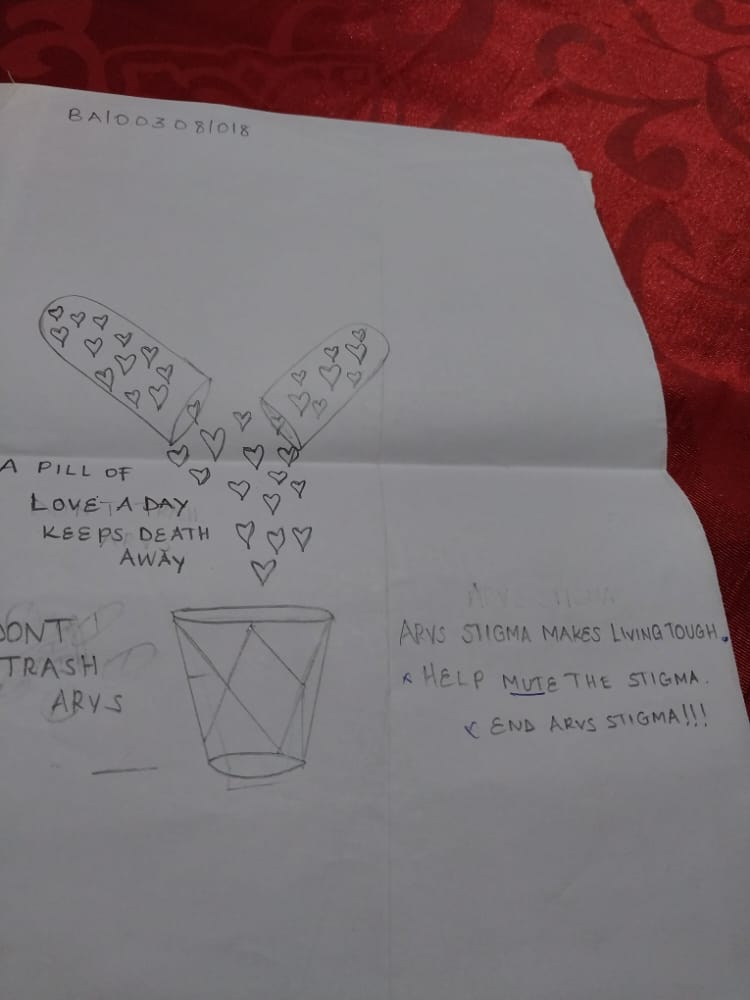 BA/00308/018
A PILL OF
LOVE A DAY
KEEPS DEATH
AWAY
DONT
TRASH
ARVS
ARVS STIGMA MAKES LIVING TOUGH.
HELP MUTE THE STIGMA.
END ARVS STIGMA!!!